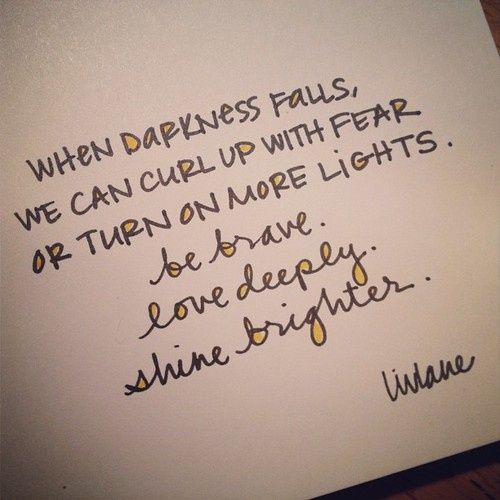 WHEN DARKNESS FALLS,
WE CAN CURL UP WITH FEAR
OR TURN ON MORE LIGHTS.
be brave.
love deeply.
shine brighter.